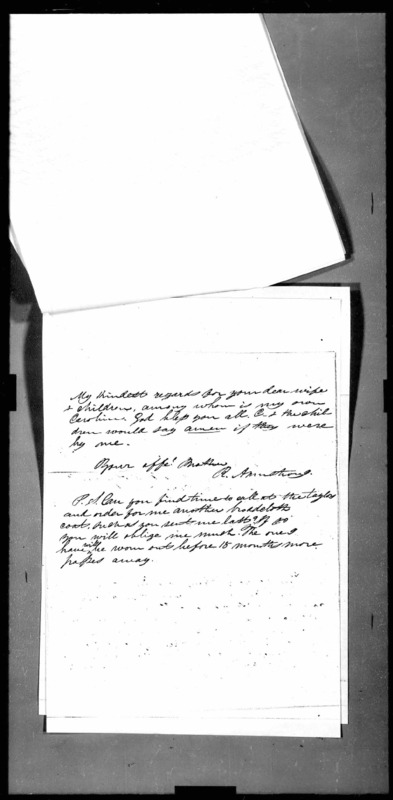 My kindest regards for your dear wife
& children, among whom is my own
Caroline. God bless you all. C. & the chil
dren would say amen if they were
by me.
Your affe! Brother
R. Armstrong.
P.S. Can you find time to call at the taylor
and order for me another broadcloth
coat, such as you sent me last? If so
you will oblige me much. The one I
have will be worn out before 18 months more
passes away.